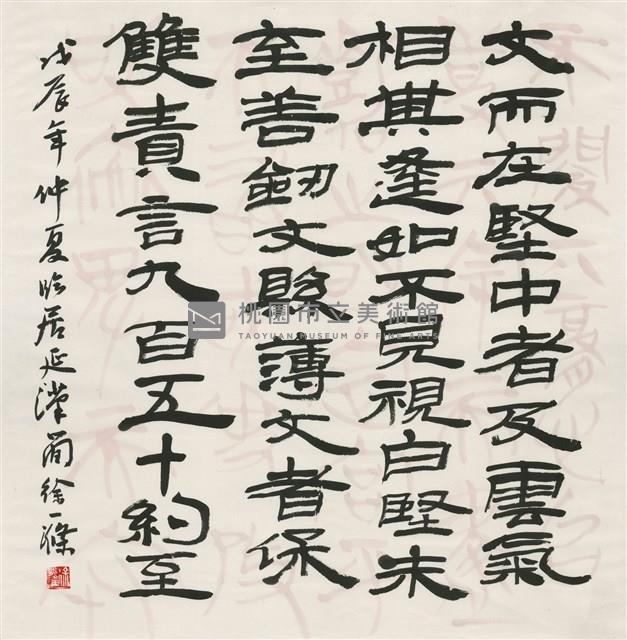 文而在堅中者及雲氣
相其逢如不見視白堅未
至善劒文䀏薄文者保
雙責言九百五十約至
戊辰年仲夏臨居延漢簡徐一滌
桃園市立美術館
TAOYUAN MUSEUM OF FINE ARTS